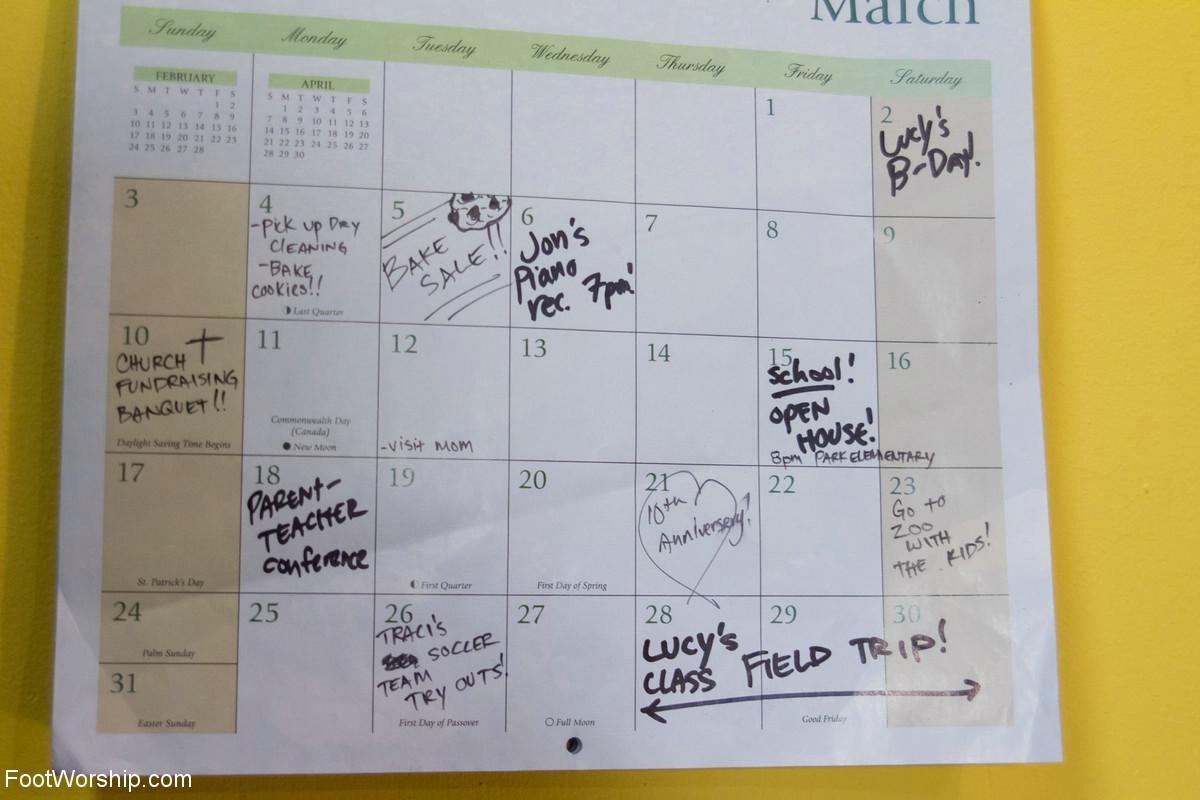 March
Sunday Monday Tuesday Wednesday Thursday Friday Saturday
FEBRUARY
S M T W T F S
1 2
3 4 5 6 7 8 9
10 11 12 13 14 15 16
17 18 19 20 21 22 23
24 25 26 27 28
APRIL
S M T W T F S
1 2 3 4 5 6
7 8 9 10 11 12 13
14 15 16 17 18 19 20
21 22 23 24 25 26 27
28 29 30
1
2
Lucy's
B-Day!
3
4
-Pick up Dry
Cleaning
-Bake
cookies!!
Last Quarter
5
BAKE
SALE!!
6
Jon's
Piano
rec. 7pm!
7
8
9
10
CHURCH
FUNDRAISING
BANQUET!!
Daylight Saving Time Begins
11
Commonwealth Day
(Canada)
New Moon
12
-VISIT MOM
13
14
15
School!
OPEN
HOUSE!
8pm PARK ELEMENTARY
16
17
St. Patrick's Day
18
PARENT-
TEACHER
Conference
19
First Quarter
20
First Day of Spring
21
10th
Anniversery!
22
23
Go to
ZOO
WITH
THE KIDS!
24
Palm Sunday
31
Easter Sunday
25
26
TRACI'S
SOCCER
TEAM
TRY OUTS!
First Day of Passover
27
Full Moon
28
29
30
LUCY'S
CLASS FIELD TRIP!
Good Friday
FootWorship.com